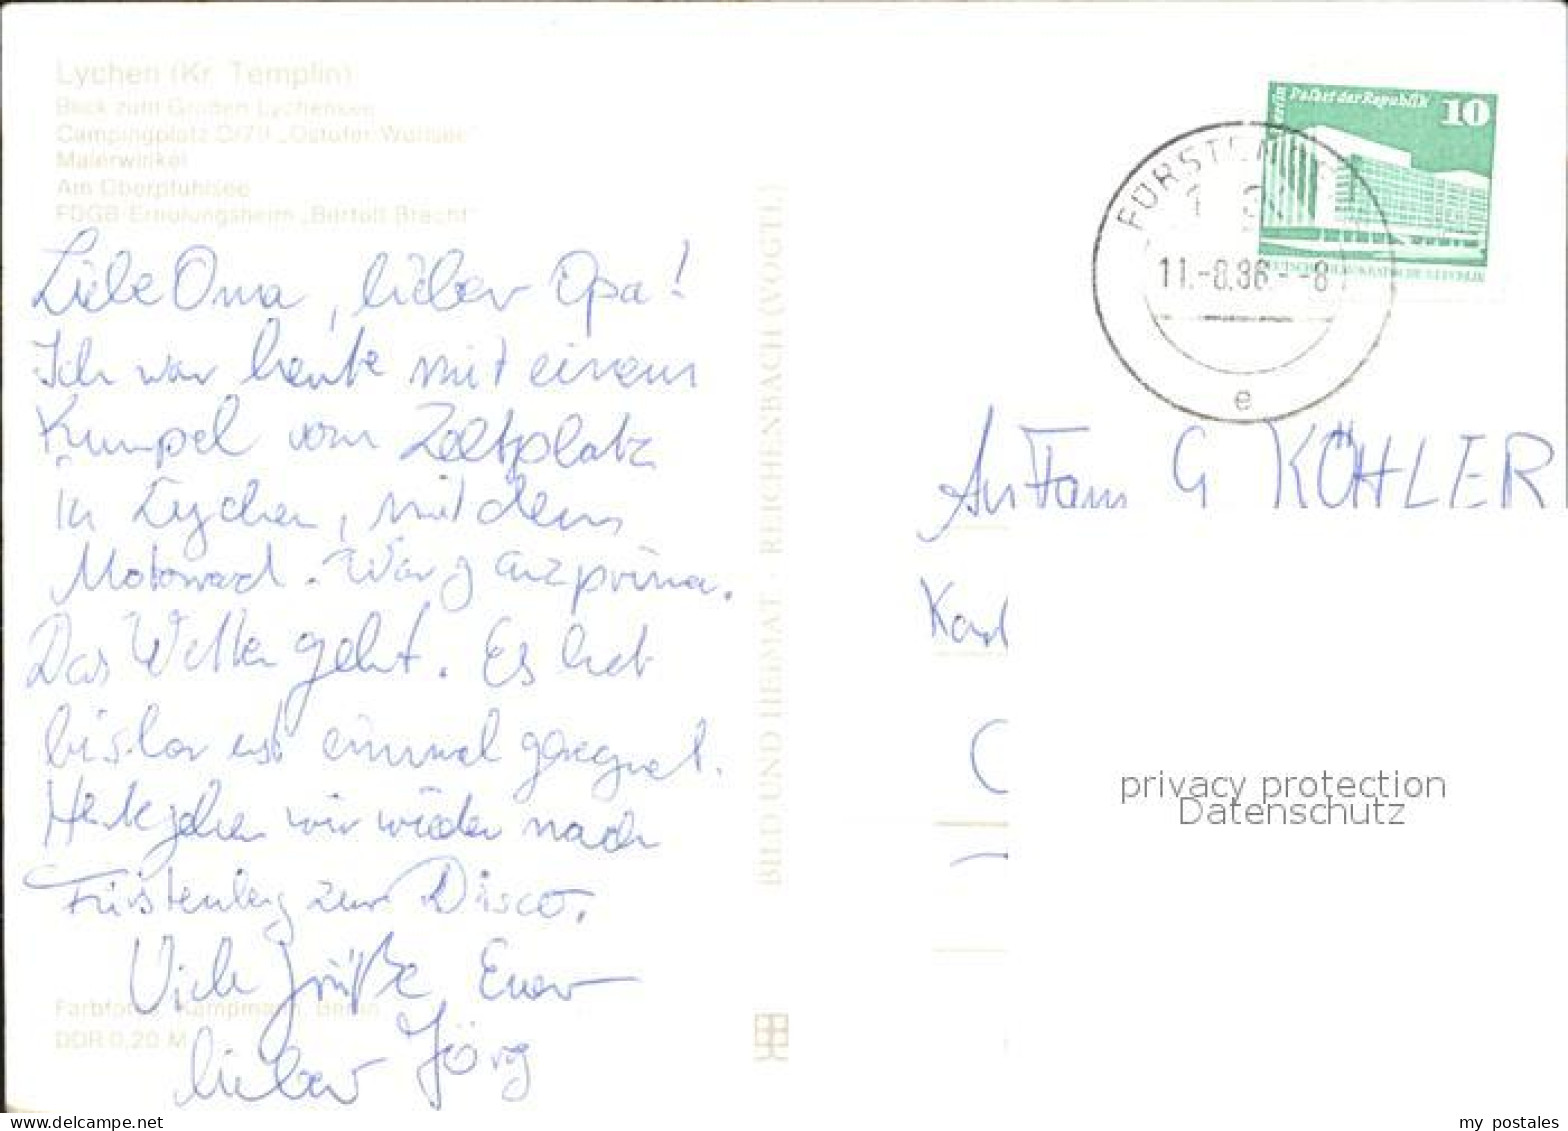 Lychen (Kr. Templin)
Blick zum Großen Lychensee
Campingplatz D/70 „Ostufer Wurlsee"
Malerwinkel
Am Oberpfuhlsee
FDGB-Erholungsheim „Bertolt Brecht"
Liebe Oma, lieber Opa!
Ich war heute mit einem
Kumpel vom Zeltplatz
in Lychen, mit dem
Motorrad. War ganz prima.
Das Wetter geht. Es hat
bisher erst einmal geregnet.
Heute gehen wir wieder nach
Fürstenberg zur Disco.
Viele Grüße Euer
lieber Jörg
Farbfotos: Kampmann, Berlin
DDR 0,20 M
BILD UND HEIMAT · REICHENBACH (VOGTL)
Berlin Palast der Republik 10
DEUTSCHE DEMOKRATISCHE REPUBLIK
FÜRSTENBE
11.-8.86.--8
e
An Fam G KÖHLER
Karl
privacy protection
Datenschutz
my postales